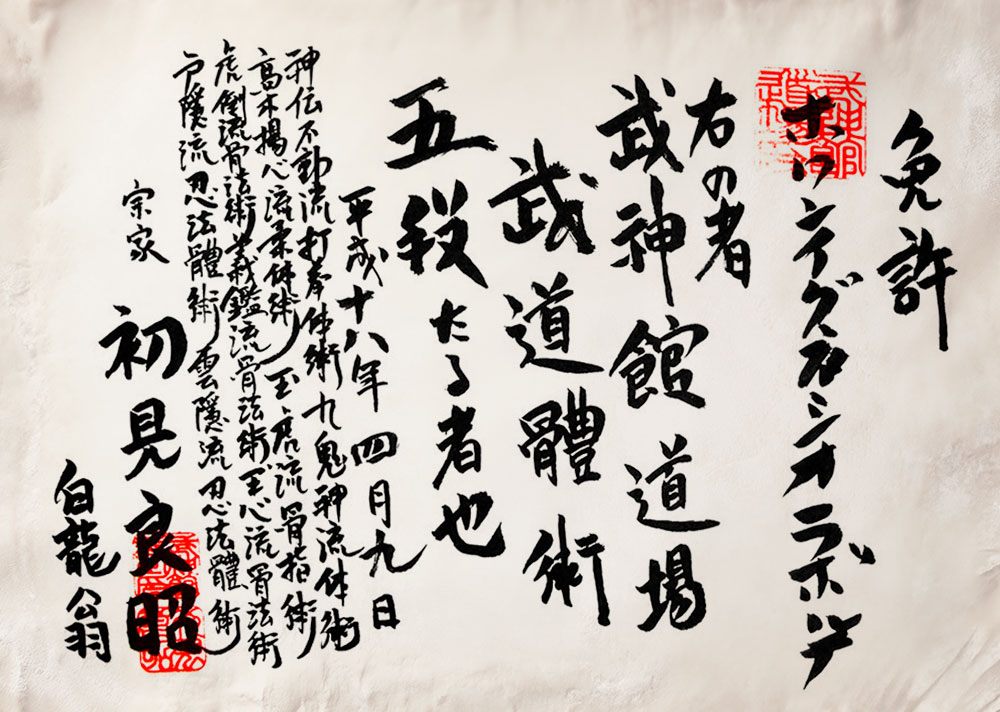 免許
ホワンイグナシオラボルデ
右の者
武神館道場
武道體術
五段たる者也
平成十八年四月九日
神伝不動流打拳体術九鬼神流体術
高木揚心流柔体術 玉虎流骨指術
虎倒流骨法術義鑑流骨法術玉心流骨法術
戸隠流忍法體術 雲隠流忍法體術
宗家
初見良昭
白龍翁